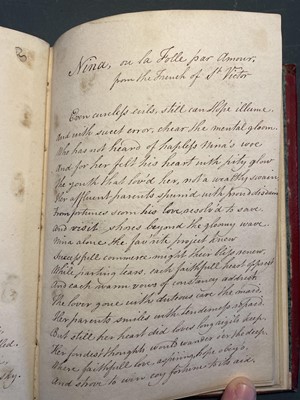 Nina, ou la Folle par Amour,
from the French of St Victor
Even cureless evils, still can Hope illume
And with sweet error, chear the mental gloom.
Who has not heard of hapless Nina's woe
And for her felt his heart with pity glow
The youth that lov'd her, not a wealthy swain
For affluent parents spurn'd with proud disdain
From fortunes scorn his love resolv'd to save
and visit shores beyond the gloomy wave
Nina alone the fav'rite project knew
Successful commerce might their bliss renew.
While parting tears, each faithful heart opprest
And each warm vows of constancy addrest
The lover gone with duteous care the maid
Her parents smiles with tenderness repaid.
But still her heart did loves keep
Her fondest thoughts went wander'd on the deep
Where faithfull love aspiring hope obey'd
And strove to win coy fortune to its aid.